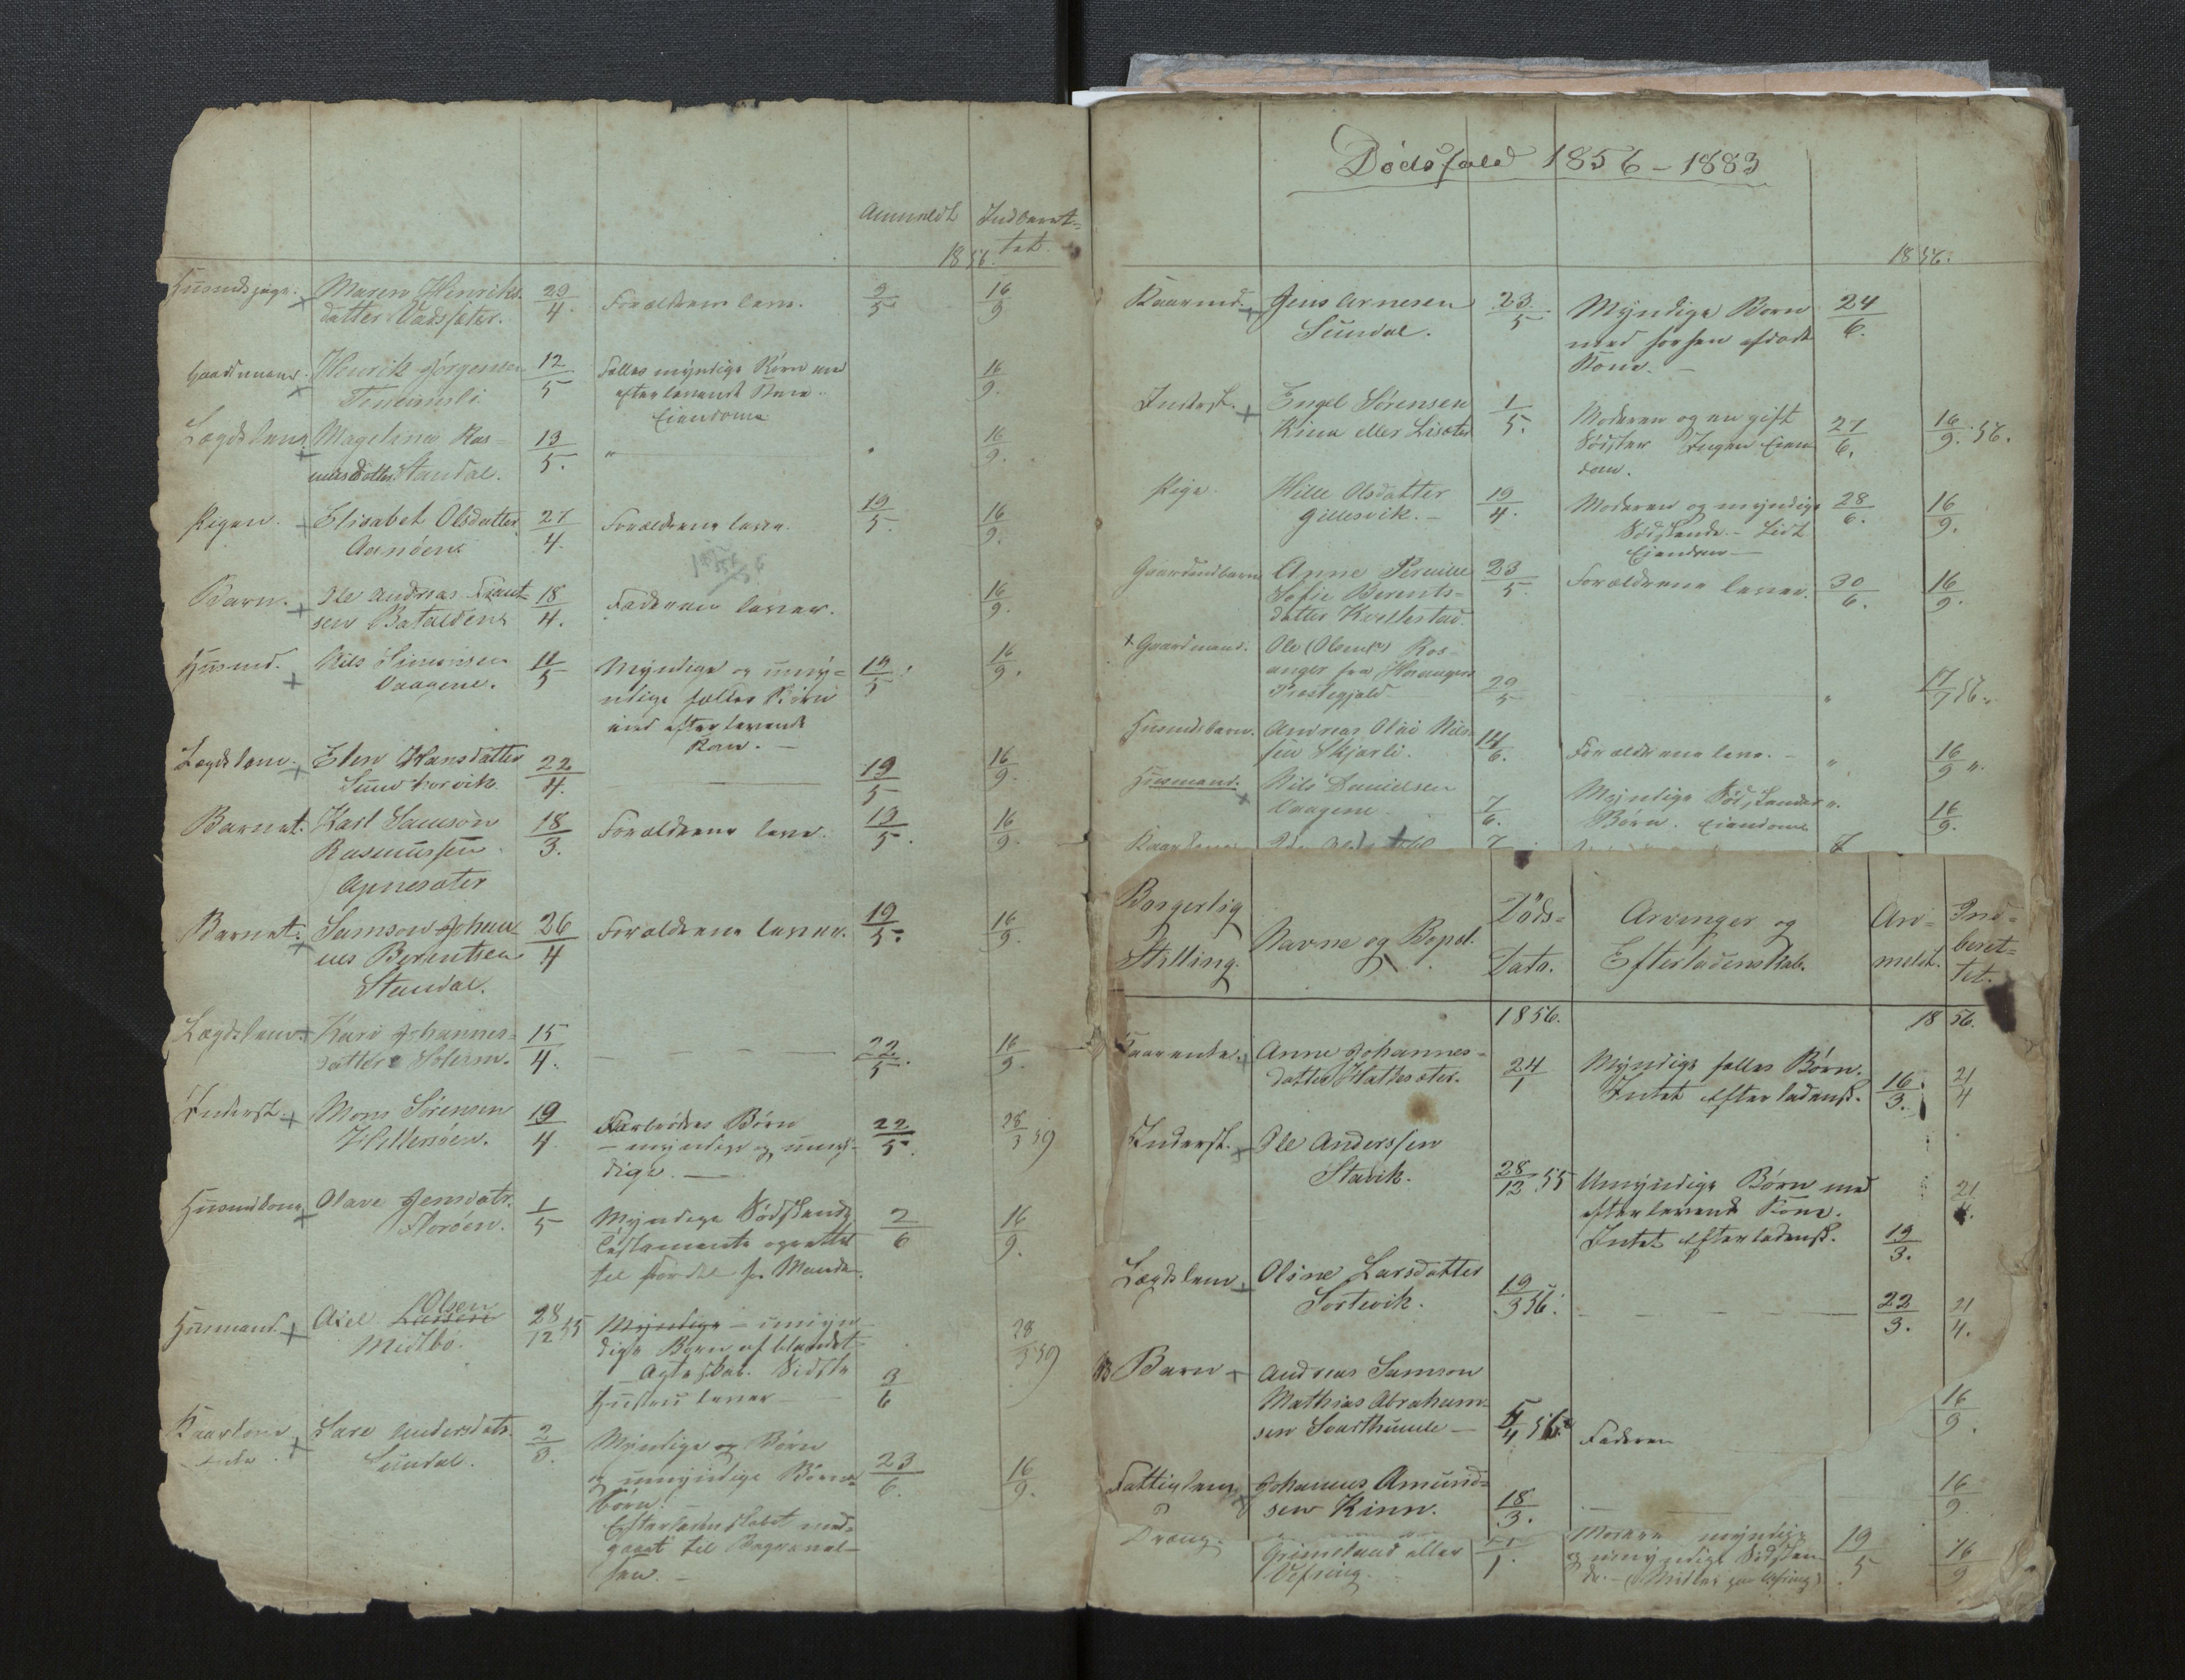 Anmeldt Indberet=
tet.
1856.
Maren Henriks-
datter Vasseter. 29/4 Forældrene leve. 9/5 16/9
Gaardmand. Henrik Jørgensen 12/5 Fælles myndige Børn med
efterlevende Kone. 16/9.
Eiendome
Lægdslem Magelina Ras=
musdatter Standal. 13/5. " " 16/9.
Pigen. Elisabet Olsdatter 27/4. Forældrene leve. 19/5. 16/9.
Barn. Ole Andreas
sen Batalden 18/4. Faderen lever. 16/9.
Husmd. Nils Simonsen
Vaagene. 11/5 Myndige og umyn=
dige fælles Børn
med efterlevende
Kone. 19/5 16/9.
Lægdslem. Elen Hansdatter 22/4. 19/5 16/9.
Barnet. Karl Samson
Rasmussen 18/3. Forældrene leve. 19/5. 16/9.
Barnet. Samson Johan
nes Berentsen 26/4 Forældrene lever. 19/5. 16/9.
Standal.
Lægdslem Kari Johannes=
datter 15/4. 22/5. 16/9.
Inderst. Mons Sørensen 19/4 Farbrødres Børn
– myndige og umyn-
dige. 22/5. 28/3 59
Husmdkone Olave Jensdatr.
Storøen. 1/5 Myndige Sødskende
Testamente oprettet
til Fordel for Manden. 2/6 16/9.
Husmand. Axel Olsen
Midtbø. 28/12 55 Myndige – umyn-
dige Børn af blandet
Ægteskab. Sidste
Hustru lever 3/6 28/3 59
Kaarkone Sare Andersdatr.
Sundal. 2/3. Myndige og Børn
og umyndige Børne-
børn. 23/6. 16/9.
Efterladenskabet med=
gaaet til Begravel-
sen. –
Dødsfald 1856 – 1883
1856.
Kaarmd. Jens Arnesen
Sundal. 23/5 Myndige Børn
med forhen afdøde
Kone. – 24/6.
Inderst. Engel Sørensen
Kinn eller 1/5. Moderen og en gift
Søster Ingen Eien
dom. 27/6. 16/9. 56.
Pige. Hille Olsdatter
Gillesvik. – 19/4. Moderen og myndige
Sødskende. – Lidt
Eiendom – 28/6. 16/9.
Gaardmdbarn Anne Pernille
Sofie Berents=
datter Kvellestad. 23/5 Forældrene lever. 30/6. 16/9.
Gaardmand. Ole (Olsen?) Ros=
anger fra
Præstegjeld 29/5 " 17/9 56.
Husmdsbarn. Andreas Olai Nils
sen Skjærli. 14/6. Forældrene leve. – " 16/9
Husmand. Nils Danielsen
Vaagene. 7/6. Myndige Sødskende
Børn. Eiendome 16/9.
Borgerlig
Stilling. Navne og Bopel. Døds=
Dato. Arvinger og
Efterladenskab. An=
meldt. Ind=
beret=
tet.
1856. 1856.
Kaarenke. Anne Johannes-
datter 24/1 Myndige fælles Børn.
Intet efterladensk. 16/3. 21/4
Inderst. Ole Anderssen
Stavik. 28/12 55 Umyndige Børn med
efterlevende Kone.
Intet efterladensk. 19/3. 21/4.
Lægdslem Oline Larsdatter
Sortevik. 19/3 56. 22/3. 21/4.
Barn Andreas Samson
Mathias Abraham-
sen – 5/4 56. Faderen 16/9.
Fattiglem Johannes Amund=
sen Kinn. 18/3. 16/9
Dreng. Grimeland eller
Vefring. 1. Moderen myndige
og umyndige Sødsken
de. 19/5 16/9